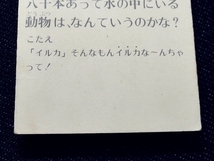 八十本あって水の中にいる
動物は、なんていうのかな？
こたえ
「イルカ」そんなもんイルカな〜んちゃ
って！